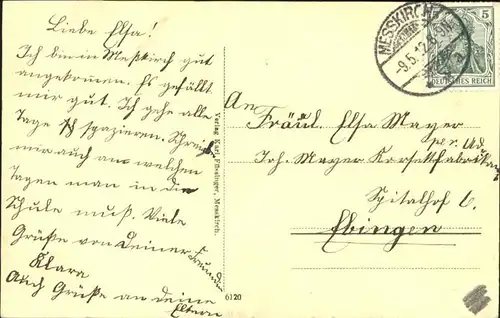 Liebe Elsa!
Ich bin in Meßkirch gut
angekommen. Es gefällt
mir gut. Ich gehe alle
Tage spazieren. Schreibe
mir auch an welchen
Tagen man in die
Schule muß. Viele
Grüße von Deiner Freundin
Klara
Auch Grüße an deine
Eltern
Verlag Karl Füssinger, Messkirch.
6120
MESSKIRCH
-9.5.12.
5
DEUTSCHES REICH
An
Fräul Elsa Mayer
Joh. Mayer Korsettfabrikant
Spitalhof 6.
Ebingen